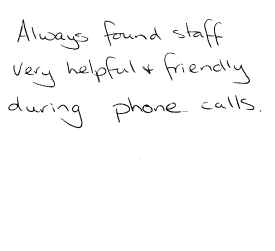 Always found staff
very helpful + friendly
during phone calls.